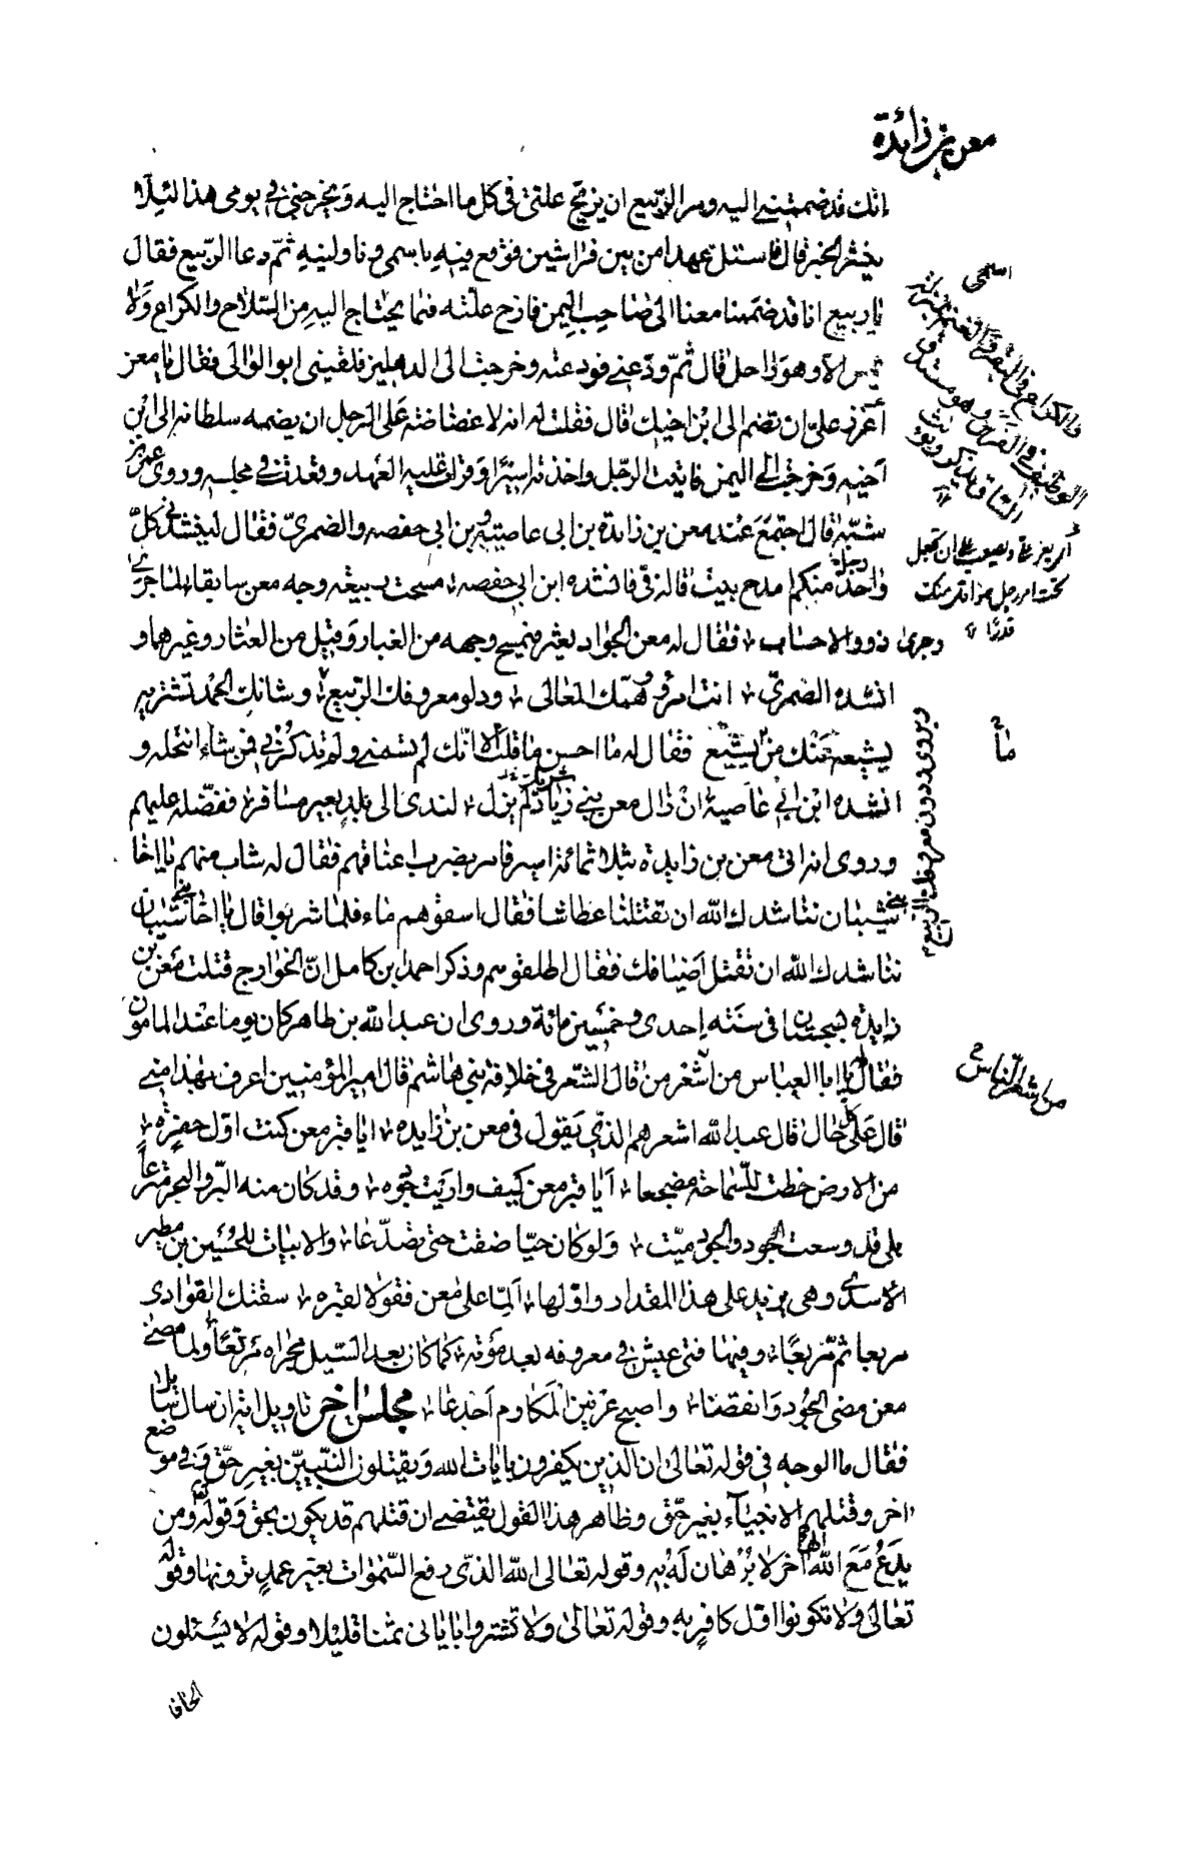 معن بن زائدة
انك قد ضممتني اليه ومر الربيع ان يزيح علتي في كل ما احتاج اليه ويخرجني في يومي هذا لئلا
ينشر الخبر قال فاستل عهدا من بين فراشين فوقع فيه باسمي وناولنيه ثم دعا الربيع فقال
يا ربيع انا قد ضممنا معنا الى صاحب اليمن فازح علته فيما يحتاج اليه من السلاح والكراع ولا
يمس الا وهو راحل قال ثم ودعني فودعته وخرجت الى الدهليز فلقيني ابو الوالي فقال يا معن
أعزز علي ان تضم الى ابن اخيك قال فقلت له انه لا غضاضة على الرجل ان يضمه سلطانه الى ابن
اخيه وخرجت الى اليمن فاتيت الرجل واخذته اسيرا وقرات عليه العهد وقعدت في مجلسه وروى عمر بن
شبه قال اجتمع عند معن بن زائدة بن ابي عاصية وبن ابي حفصه والضمري فقال لينشدني كل
واحد منكم امدح بيت قاله في فانشده ابن ابي حفصه مسحت ربيعة وجه معن سابقا لما جرى
وجرى ذوو الاحساب فقال له معن الجواد يعثر فيمسح وجهه من الغبار وقيل من العثار وغيرهما و
انشده الضمري انت امرؤ همك المعالى ودلو معروفك الربيع وشانك الحمد تشتريه
يشيعه عنك من يشيع فقال له ما احسن ما قلت الا انك لم تسمني ولم تذكرني فمن شاء انتحله و
انشده ابن ابي عاصية ان زال معن بني زياد لم يزل لندى الى بلد بعير مسافر ففضله عليهم
وروى انه اتى معن بن زايدة بثلاثمائة اسير فامر بضرب اعناقهم فقال له شاب منهم يا اخا
شيبان نناشدك الله ان تقتلنا عطاشا فقال اسقوهم ماء فلما شربوا قال يا اخا شيبان
نناشدك الله ان تقتل اضيافك فقال اطلقوهم وذكر احمد بن كامل ان الخوارج قتلت معن بن
زايدة بسجستان في سنة احدى وخمسين مائة وروى ان عبد الله بن طاهر كان يوما عند المامون
فقال يا ابا العباس من اشعر من قال الشعر في خلافة بني هاشم قال امير المؤمنين اعرف بهذا مني
قال على كل حال قال عبد الله اشعرهم الذي يقول في معن بن زايده ايا قبر معن كنت اول حفرة
من الارض خطت للسماحة مضجعا ايا قبر معن كيف واريت جوده وقد كان منه البر والبحر مترعا
بلى قد وسعت الجود والجود ميت ولو كان حيا ضقت حتى تصدعا والابيات للحسين بن مطير
الاسدي وهي يزيد على هذا المقدار واولها الما على معن فقولا لقبره سقتك الغوادى
مربعا ثم مربعا وفيها فتى عيش في معروفه بعد موته كما كان بعد السيل مجراه مرتعا ولما مضى
معن مضى الجود وانقضا واصبح عرنين المكارم اجدعا مجلس اخر تاويل اية ان سال سائل
فقال ما الوجه في قوله تعالى ان الذين يكفرون بايات الله ويقتلون النبيين بغير حق وفي موضع
اخر وقتلهم الانبياء بغير حق وظاهر هذا القول يقتضي ان قتلهم قد يكون بحق وقوله ومن
يدع مع الله الها اخر لا برهان له به وقوله تعالى الله الذي رفع السموات بغير عمد ترونها وقوله
تعالى ولا تكونوا اول كافر به وقوله تعالى ولا تشتروا باياتي ثمنا قليلا وقوله لا يسئلون
الحافا
اي يعز علي ويصعب علي ان تجعل
تحت امر رجل هو اقل منك
قدرا
ويروى ودون معروفك الربيع
من اشعر الناس